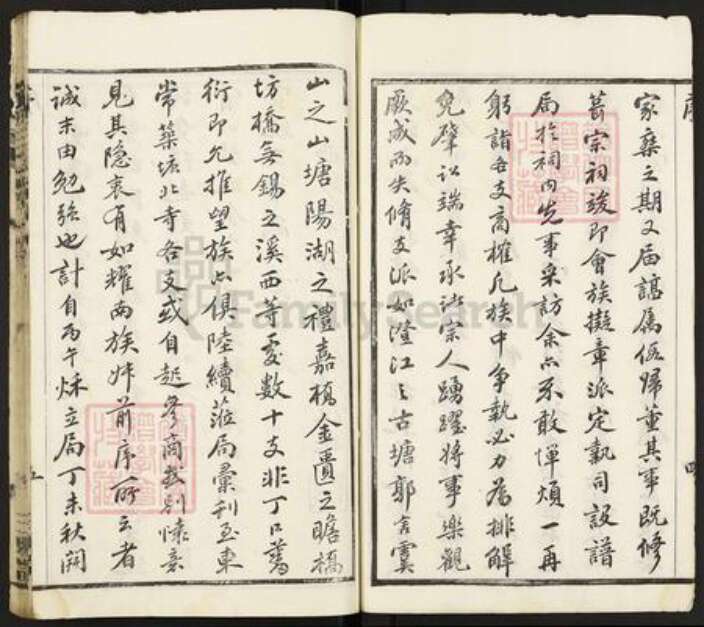 序
家乘之期又届諶屬侄歸董其事既修
葺宗祠竣即會族擬章派定執司設譜
局於祠內先事采訪余亦不敢憚煩一再
躬詣各支商榷凡族中爭執必力為排解
免肇訟端幸承沿宗人踴躍將事樂觀
厥成而失脩支派如澄江之古塘郭言霙
山之山塘陽湖之禮嘉橋金匱之瞻橋
坊橋無錫之溪西等處數十支非丁口蕃
衍即允推望族亦俱陸續蒞局彙刊至東
常築塘北寺各支或自起參商或別懷意
見其隱衷有如耀南族姪前序所云者
誠未由勉強也計自丙午秌立局丁未秋開
五
FamilySearch